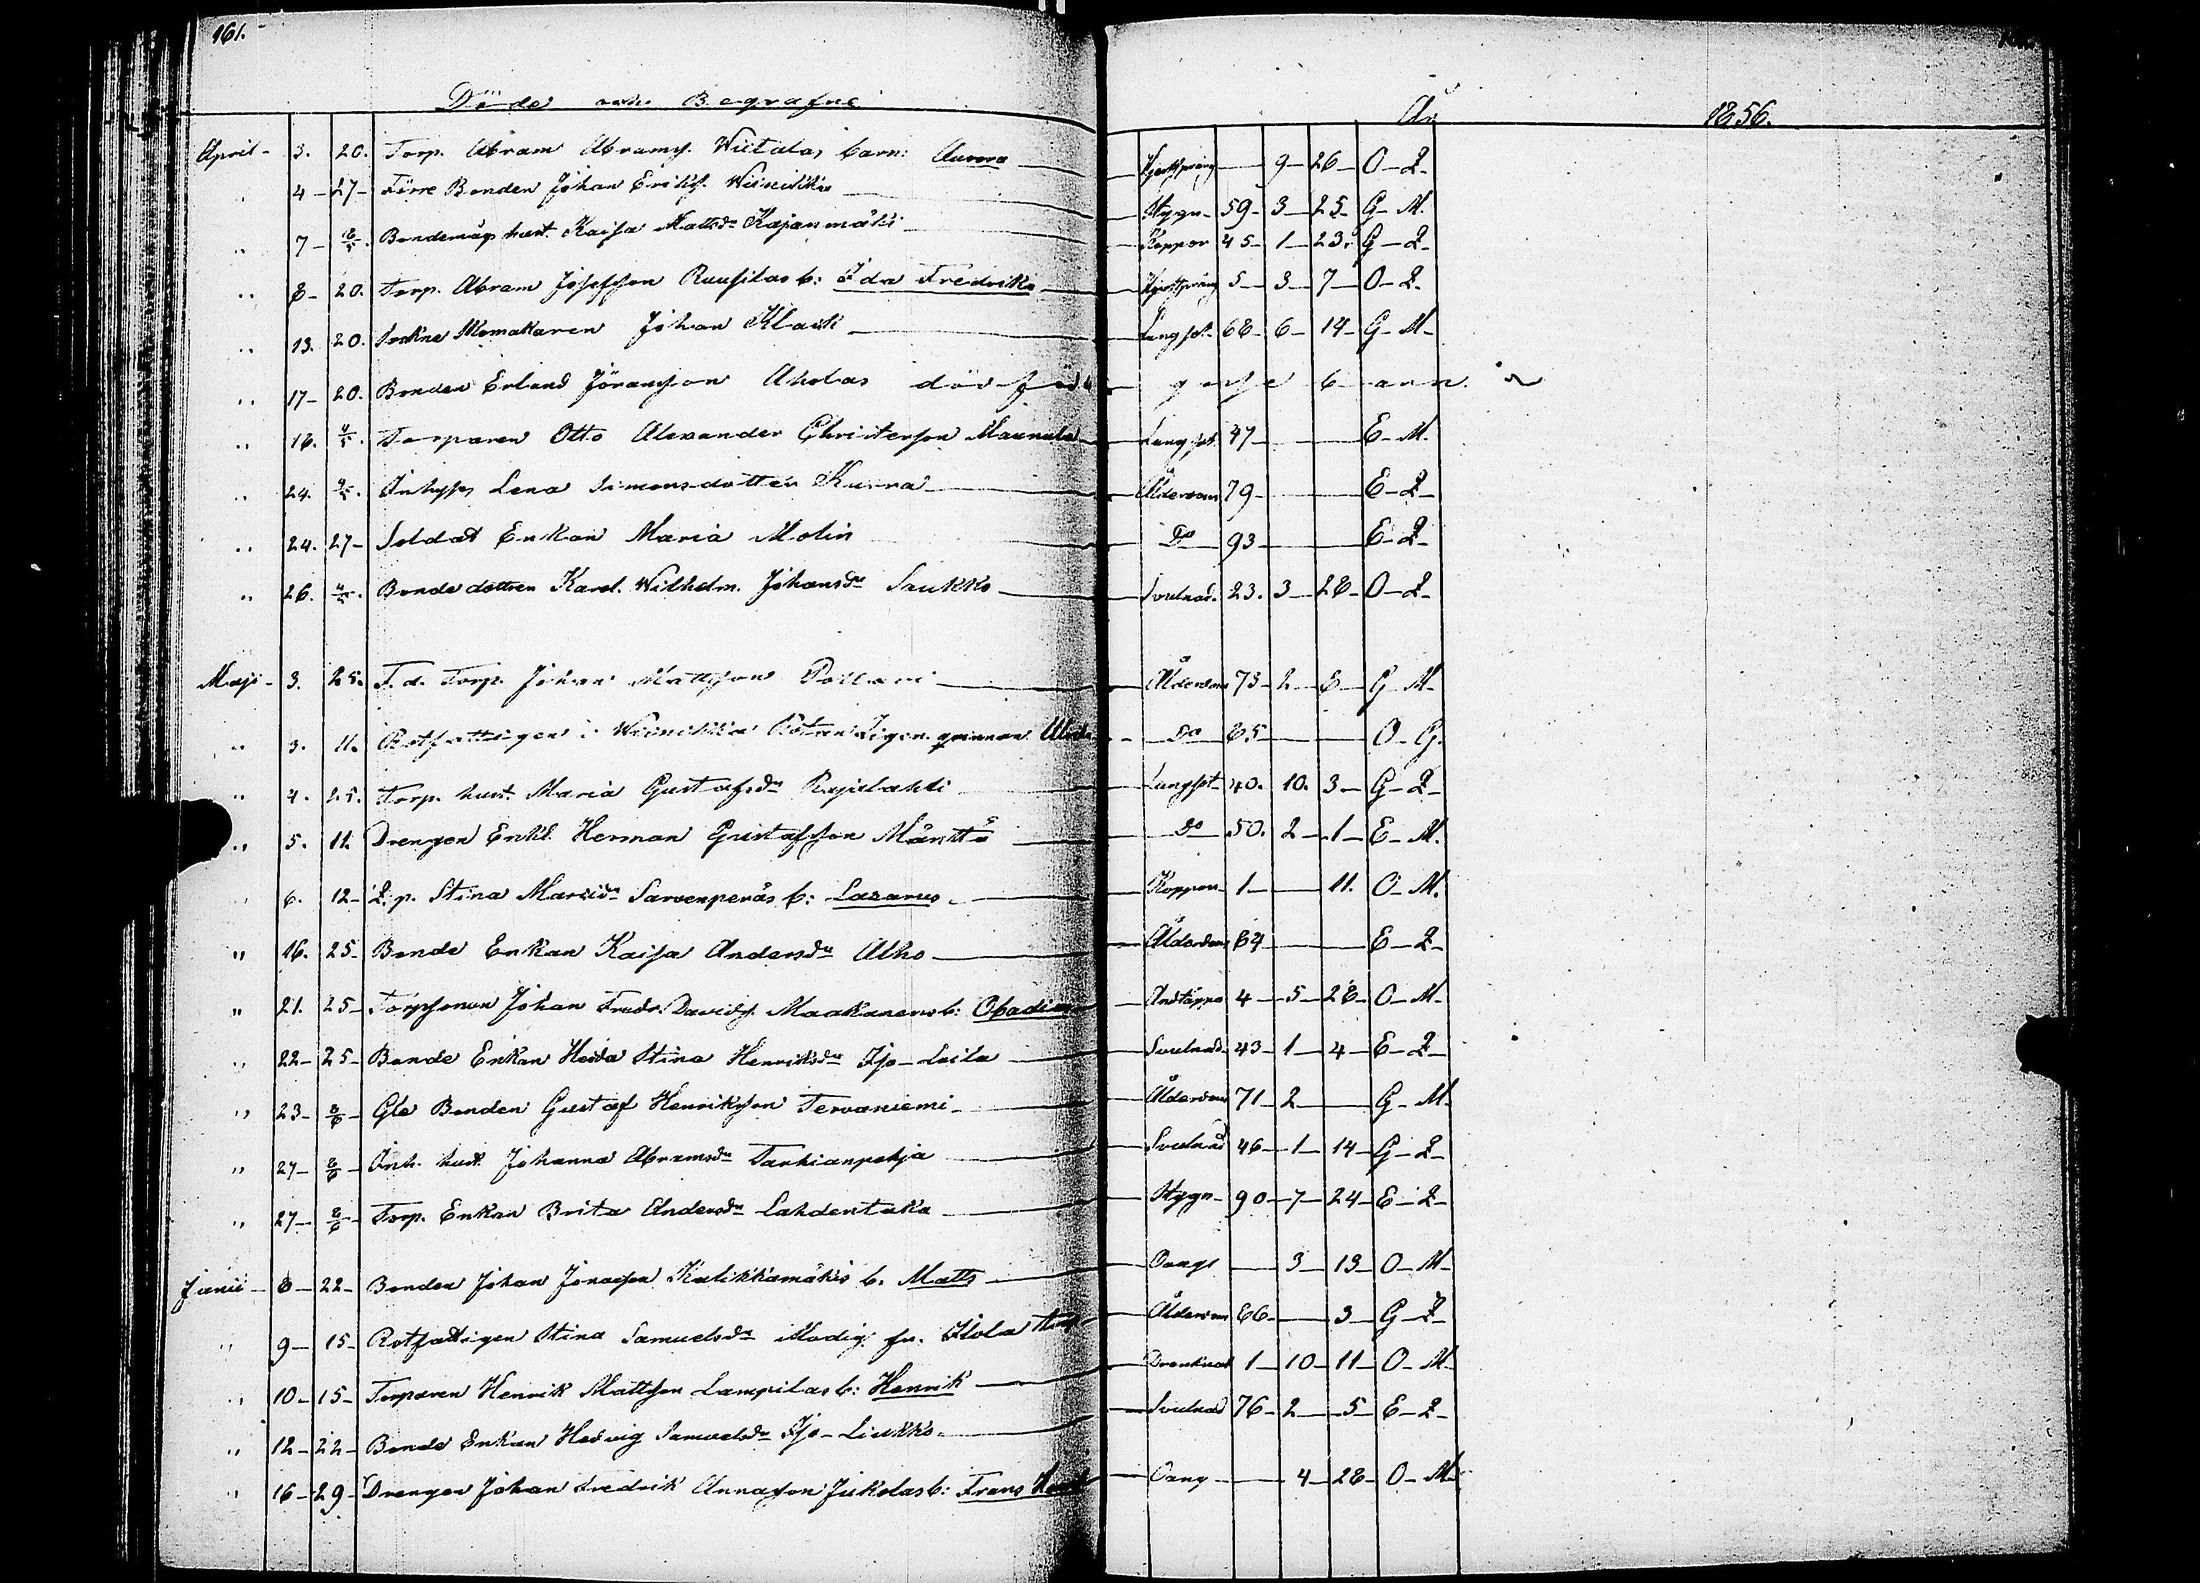 161.
Döde och Begrafne År 1856.
April - 3. 20. Torp. Abram Abramss. Wiitalas barn: Aurora - Hjertspräng - 9 - 26 - O - Q -
" 4 - 27 - Förre Bonden Johan Eriks. Wiinikka - Stygn - 59 - 3 - 25 - G - M.
" 7 - 2/5. Bondemågs hust. Kaisa Mattsdr Kajanmäki - Koppor 45 - 1 - 23. G - Q -
" 8 - 20. Torp. Abram Josefsson Ruusilas b: Ida Fredrika - Hjertspräng 5 - 3 - 7 - O - Q -
" 13. 20. Sockne Skomakaren Johan Klack - Lungsot - 68 - 6 - 14 - G - M -
" 17 - 20. Bonden Erland Göransson Aholas död född gosse barn.
" 16. 4/5. Torparen Otto Alexander Christersson Maunula - Lungsot. 47 - E - M.
" 24. 4/5. Inhyses Lena Simonsdotter Kurra - Ålderdom 79 - E - Q -
" 24. 27 - Soldat Enkan Maria Molin - Do - 93 - E - Q -
" 26. 4/5. Bonde dottren Karol. Wilhelm. Johansdr Saukko - Svulnad. 23. 3 - 28 - O - Q -
Maji - 3. 25. F. d. Torp. Johan Mattsson Pollari - Ålderdom 75 - 2 - 8 - G - M -
" 3. 11. Rotfattigen i Wiinikka Rotan qvinnan - Do 65 - O - Q.
" 4. 25. Torp. hust. Maria Gustafsdr Rajalahti - Lungsot - 40. 10. 3 - G - Q -
" 5. 11. Drengen Enkl. Herman Gustafsson Mänttä - Do - 50. 2 - 1 - E - M.
" 6. 12 - Q. p. Stina Marsdr Sarvenperäs b: Lazarus - Koppor - 1 - 11. O - M.
" 16. 25 - Bonde Enkan Kaisa Andersdr Alho - Ålderdom 84 - E - Q -
" 21. 25 - Torpsonen Johan Fredr. Davids. Maakanens b: Obadias - Andtäppa 4 - 5 - 28 - O - M -
" 22 - 25 - Bonde Enkan Heda Stina Henriksdr Iso - Luila - Svulnad - 43 - 1 - 4 - E - Q -
" 23 - 8/6 - Gle Bonden Gustaf Henriksson Tervaniemi - Ålderdom 71 - 2 - G - M -
" 27 - 8/6 - Inh. hust. Johanna Abramsdr Tarkianpohja - Svulnad 46 - 1 - 14 - G - Q -
" 27 - 8/6 - Torp. Enkan Brita Andersdr Lahdentaka - Stygn - 90 - 7 - 24 - E - Q -
Junii - 8 - 22 - Bonden Johan Jonasson Kalikkamäkis b. Matts - Oangt - 3 - 13 - O - M -
" 9 - 15 - Rotfattigen Stina Samuelsdr Modig fr. Ilola - Ålderdom 66 - 3 - G - Q
" 10 - 15 - Torparen Henrik Mattsson Lampilas b: Henrik - Drunknat 1 - 10 - 11 - O - M -
" 12 - 22 - Bonde Enkan Hedvig Samuelsdr Iso - Liukko - Svulnad 76 - 2 - 5 - E - Q -
" 16 - 29 - Drengen Johan Fredrik Annasson Jukolas b: Frans - Oang - 4 - 28 - O - M -